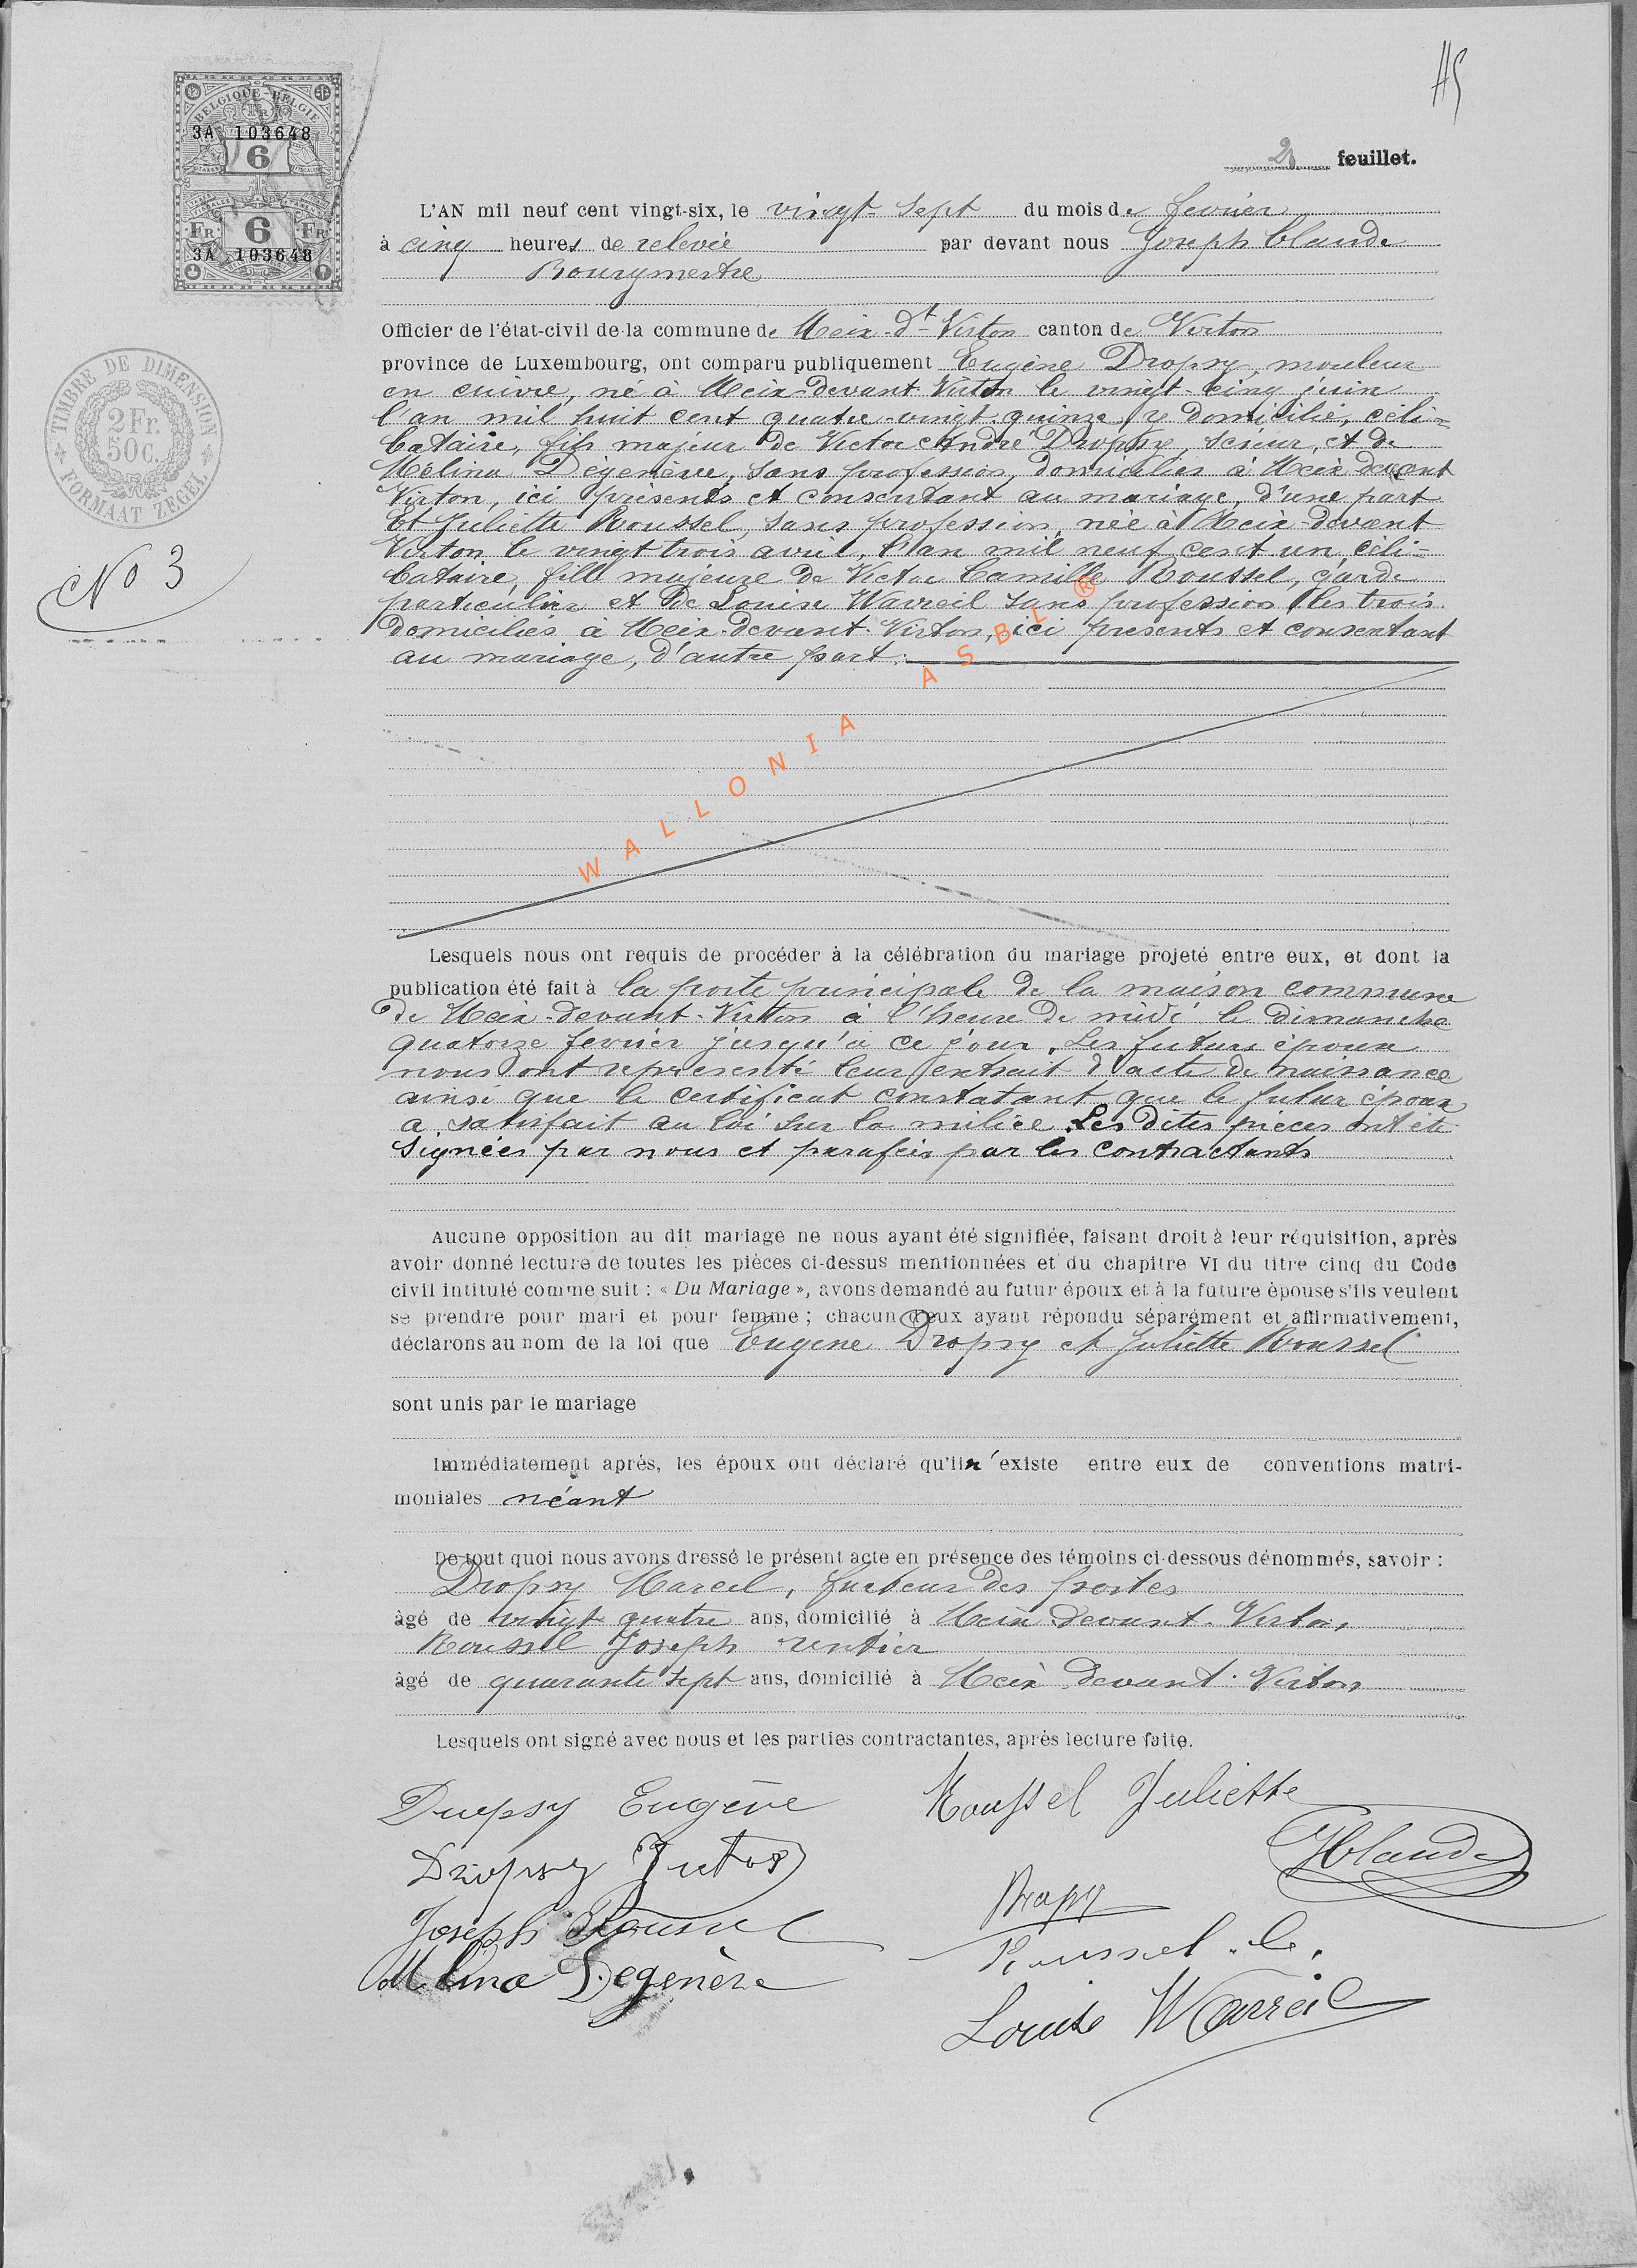 BELGIQUE-BELGIE
3A 103648
6
Fr. 6 Fr.
3A 103648
2 feuillet.
L'AN mil neuf cent vingt-six, le vingt-sept du mois de fevrier
à cinq heures de relevée par devant nous Joseph Claude
Bourgmestre
Officier de l'état-civil de la commune de Meix-dt-Virton canton de Virton
province de Luxembourg, ont comparu publiquement Eugène Dropsy, mouleur
en cuivre, né à Meix-devant-Virton le vingt-cinq juin
l'an mil huit cent quatre-vingt quinze, y domicilié, céli-
bataire, fils majeur de Victor André Dropsy, scieur, et de
Mélina Dégenève, sans profession, domiciliés à Meix devant
Virton, ici présents et consentant au mariage, d'une part
Et Juliette Roussel, sans profession, née à Meix-devant
Virton le vingt trois avril, l'an mil neuf cent un, céli-
bataire, fille majeure de Victor Camille Roussel, garde
particulier et de Louise Wavreil sans profession, les trois
domiciliés à Meix-devant-Virton, ici présents et consentant
au mariage, d'autre part.
WALLONIA ASBL ®
TIMBRE DE DIMENSION
2 Fr.
50 C.
FORMAAT ZEGEL
No 3
Lesquels nous ont requis de procéder à la célébration du mariage projeté entre eux, et dont la
publication été fait à la porte principale de la maison commune
de Meix-devant-Virton à l'heure de midi le dimanche
quatorze fevrier jusqu'à ce jour. Les futurs époux
nous ont représenté leur extrait d'acte de naissance
ainsi que le certificat constatant que le futur époux
a satisfait au loi sur la milice. Les dites pièces ont été
signées par nous et parafées par les contractants
Aucune opposition au dit mariage ne nous ayant été signifiée, faisant droit à leur réquisition, après
avoir donné lecture de toutes les pièces ci-dessus mentionnées et du chapitre VI du titre cinq du Code
civil intitulé comme suit : « Du Mariage », avons demandé au futur époux et à la future épouse s'ils veulent
se prendre pour mari et pour femme ; chacun d'eux ayant répondu séparément et affirmativement,
déclarons au nom de la loi que Eugene Dropsy et Juliette Roussel
sont unis par le mariage
Immédiatement après, les époux ont déclaré qu'il n'existe entre eux de conventions matri-
moniales néant
De tout quoi nous avons dressé le présent acte en présence des témoins ci-dessous dénommés, savoir :
Dropsy Marcel, facteur des postes
âgé de vingt quatre ans, domicilié à Meix devant-Virton,
Roussel Joseph rentier
âgé de quarante sept ans, domicilié à Meix devant-Virton
Lesquels ont signé avec nous et les parties contractantes, après lecture faite.
Dropsy Eugène Roussel Juliette
Dropsy JClaude
Joseph Roussel Dropsy
Mélina Degenève Roussel C.
Louise Wavreil